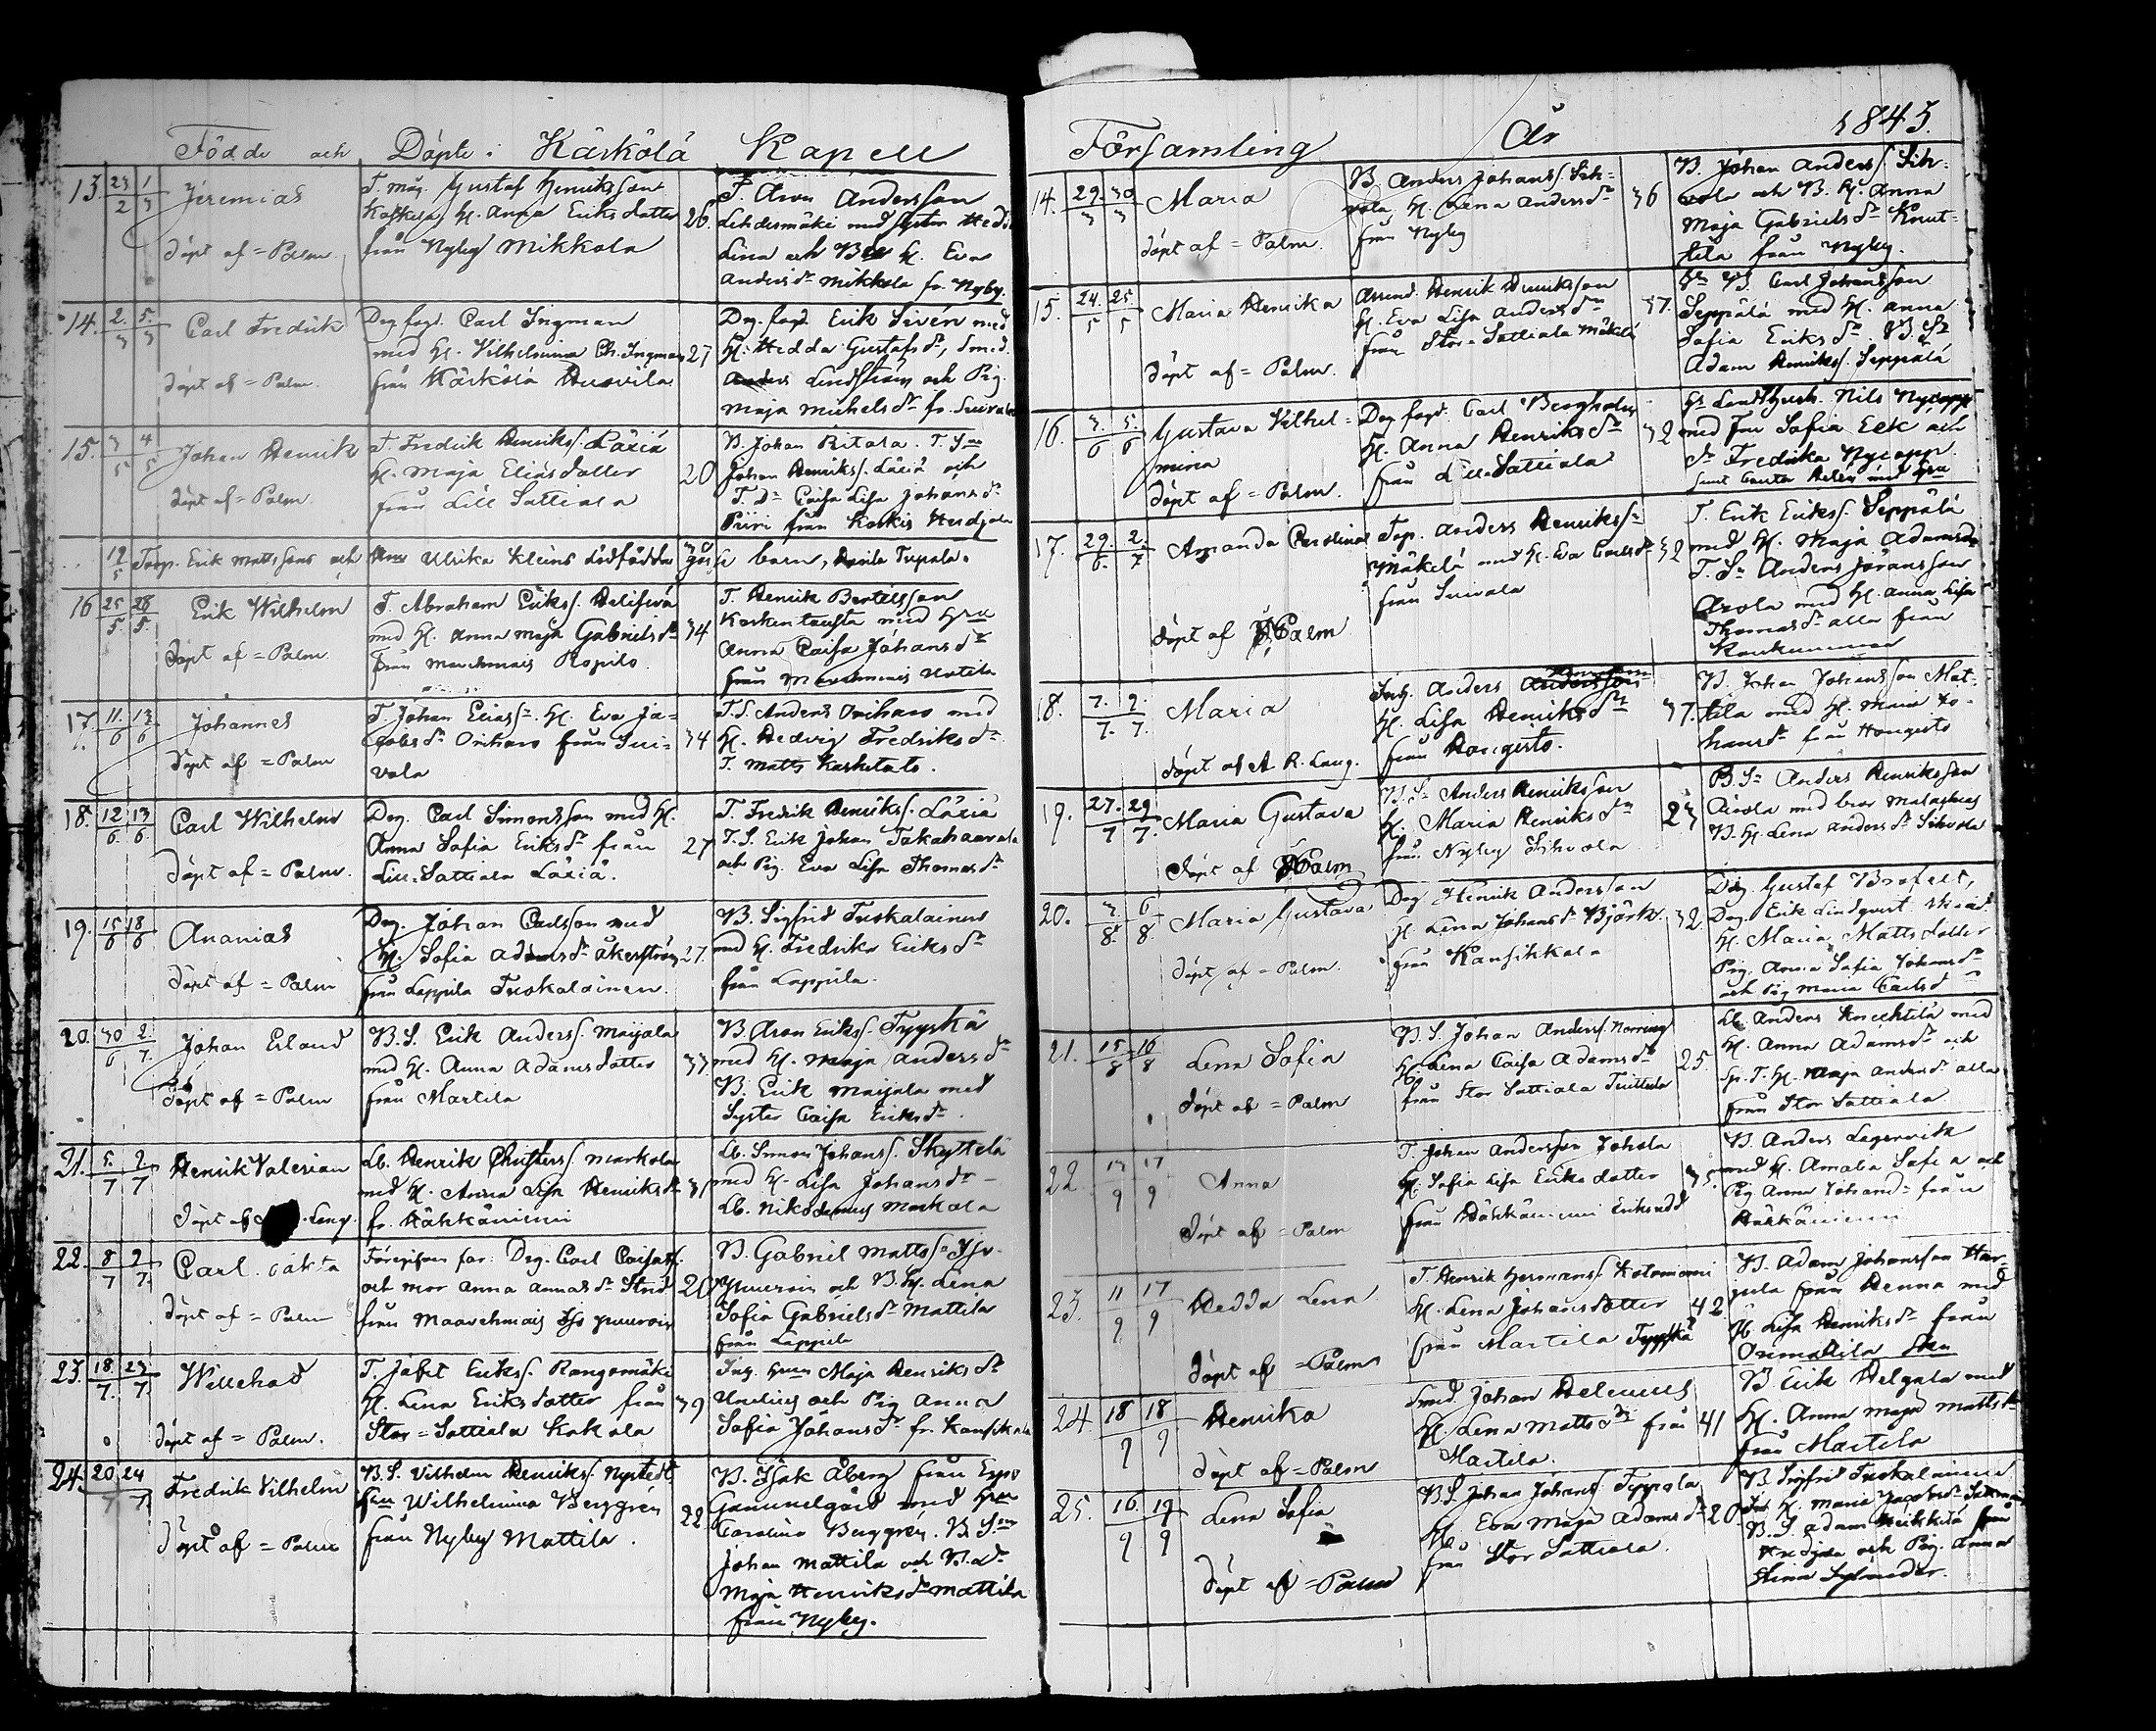 Födde och Döpte i Kärkölä Kapell
13. 23/2 1/3 Jeremias
döpt af = Palm
T. måg. Gustaf Henriksson
Koskela, H. Anna Eriks dotter
från Nyby Mikkola
26.
T. Aron Andersson
Lehdesmäki med syster Hedda
Lina och B. H. Eva
Andersdr Mikkola fr. Nyby.
14. 2/3 5/3 Carl Fredrik
döpt af = Palm.
Deg. fogd. Carl Ingman
med H. Vilhelmina Ch. Ingman
från Kärkölä Huovila
27
Deg. fogd. Erik Sirén med
H. Hedda Gustafsdr, Smed.
Anders Lindström och Pig.
Maja Michelsdr fr. Suivala
15. 3/5 4/5 Johan Henrik
döpt af = Palm.
T. Fredrik Henrikss. Läxiä
H. Maja Eliasdotter
från Lill Sattiala
20
B. Johan Ritara. T. Son
Johan Henrikss. Läxiä och
T. Dr Caisa Lisa Johansdr
Piiri från Koskis Herdjala
12/5 Torp. Erik Mattssons och Ulrika Kleins dödfödda gosse barn, Tupala.
16 25/5 28/5 Erik Wilhelm
Döpt af = Palm.
T. Abraham Erikss.
med H. Anna Maja Gabrielsdr
från Marchmais Ropilo.
34
T. Henrik Bertilsson
med Hru
Anna Caisa Johansdr
från
17. 11/6 13/6 Johannes
Döpt af = Palm
T. Johan Eliass. H. Eva Ja-
cobsdr Oriharo från Sui-
vala
34
T. S. Anders Oriharo med
H. Hedvig Fredriksdr
T. Matts
18. 12/6 13/6 Carl Wilhelm
Döpt af = Palm.
Deg. Carl Simonsson med H.
Anna Sofia Eriksdr från
Lill-Sattiala Läxiä.
27
T. Fredrik Henrikss. Läxiä
T. S. Erik Johan Takahaarala
och Pig. Eva Lisa Thomasdr
19. 15/6 18/6 Ananias
Döpt af = Palm
Deg. Johan Carlsson med
H. Sofia Adamsdr Åkerström
från Lappila Tuskalainen.
27.
B. Sigfrid Tuskalainen
med H. Fredrika Eriksdr
från Lappila.
20. 30/6 2/7 Johan Erland
döpt af = Palm
B. S. Erik Anderss. Maijala
med H. Anna Adamsdotter
från Martila
33
B. Aron Erikss. Tyyskä
med H. Maja Andersdr
B. Erik Maijala med
Syster Caisa Eriksdr.
21. 5/7 7/7 Henrik Valerian
Döpt af Lang.
Lb. Henrik Christerss. Markola
med H. Anna Lisa Henriksdr
fr. Hähkäniemi
31
Lb. Simon Johanss. Skyttelä
med H. Lisa Johansdr
Lb. Nikodemus Markola
22. 8/7 9/7 Carl
döpt af = Palm
Föregifven far. Deg. Carl
och mor Anna Annasdr Strid
från Maavehmais
20
B. Gabriel Mattss.
och B. H. Lena
Sofia Gabrielsdr Mattila
från Lappila
23. 18/7 23/7 Willehad
döpt af = Palm.
T. Jafet Erikss. Rangomäki
H. Lena Eriksdotter från
Stor-Sattiala Kokola
39
Inh. Hru Maja Henriksdr
Unelius och Pig Anna
Sofia Johansdr fr. Kansikala
24. 20/7 24/7 Fredrik Vilhelm
Döpt af = Palm
B. S. Vilhelm Henrikss. Nystedt
Hru Wilhelmina Berggrén
från Nyby Mattila.
22.
B. Isak Åberg från Espo
Gammelgård med Hru
Carolina Berggrén. B. Son
Johan Mattila och B. dr
Maja Henriksdr Mattila
från Nyby.
Församling År 1845.
14. 29/3 30/3 Maria
döpt af = Palm.
B Anders Johanss. Sih-
vola, H. Lena Andersdr
från Nyby
36
B. Johan Anderss. Sih-
vola och B. H. Anna
Maja Gabrielsdr Knut-
tila från Nyby.
15. 24/5 25/5 Maria Henrika
döpt af = Palm.
Arrend. Henrik Henriksson
H. Eva Lisa Andersdr
från Stor-Sattiala Mäkelä
37.
B. Carl Johansson
Seppälä med H. Anna
Sofia Eriksdr B. Sn
Adam Henrikss. Seppälä
16. 3/6 5/6 Gustava Vilhel-
mina
döpt af = Palm.
Deg fogd. Carl Bergholm
H. Anna Henriksdr
från Lill-Sattiala
32
Hr Nils Nycopp
med Fru Sofia Eek och
Dr Fredrika Nycopp
17. 29/6 2/7 Amanda Carolina
döpt af Palm
Torp. Anders Henrikss.
Mäkelä med H. Eva Carlsdr
från Suivala
32
T. Erik Erikss. Seppälä
med H. Maja Adamsdr
T. Sn Anders Göransson
Arola med H. Anna Lisa
Thomasdr alla från
18. 7/7 9/7 Maria
döpt af A. R. Lang.
Inh. Anders Andersson
H. Lisa Henriksdr
från Hongisto.
37.
B. Johan Johansson Mat-
tila med H. Maria Jo-
hansdr från Hongisto
19. 27/7 29/7 Maria Gustava
Döpt af Palm
B. Sn Anders Henriksson
H. Maria Henriksdr
från Nyby Sihvola
23
B. Sn Anders Henriksson
Arola med bror Malachias
B. H. Lena Andersdr Sihvola
20. 3/8 6/8 Maria Gustava
döpt af = Palm.
Deg Henrik Andersson
H. Lena Johansdr Björk.
från Kansikkala
32
Deg. Gustaf Brofelt,
Deg. Erik Lindqvist
H. Maria Mattsdotter
Pig. Anna Sofia Johansdr
och Pig Maria Carlsdr
21. 15/8 16/8 Lena Sofia
döpt af = Palm
B. S. Johan Anderss.
H. Lena Caisa Adamsdr
från Stor Sattiala Tuittula
25.
Lb. Anders Knichtilä med
H. Anna Adamsdr och
Sp. T. H. Maja Andersdr alla
från Stor Sattiala
22. 13/9 17/9 Anna
döpt af = Palm
T. Johan Andersson Johola
H. Sofia Lisa Eriksdotter
från Hähkäniemi
35.
B. Anders Lagervik
med H. Amalia Sofia och
Pig Anna Johansdr från
Hähkäniemi
23. 11/9 17/9 Hedda Lena
döpt af = Palm
T. Henrik Hermanss. Kotoniemi
H. Lena Johansdotter
från Martila Tyyskä
42
B. Adam Johansson Har-
jula från Henna med
H. Lisa Henriksdr från
Orimattila Skn
24. 18/9 18/9 Henrika
döpt af = Palm
Smed. Johan Helenius
H. Lena Mattsdr från
Martila.
41
B Erik Helgala med
H. Anna Maja Mattsdr
från Martila
25. 16/9 19/9 Lena Sofia
döpt af = Palm
B. S. Johan Johanss. Typpola
H. Eva Maja Adamsdr
från Stor Sattiala.
20
B. Sigfrid Tuskalainen
H. Maria Jacobsdr
B. S. Adam Heikkilä från
Herdjala och Pig. Anna
Stina Sylvander.